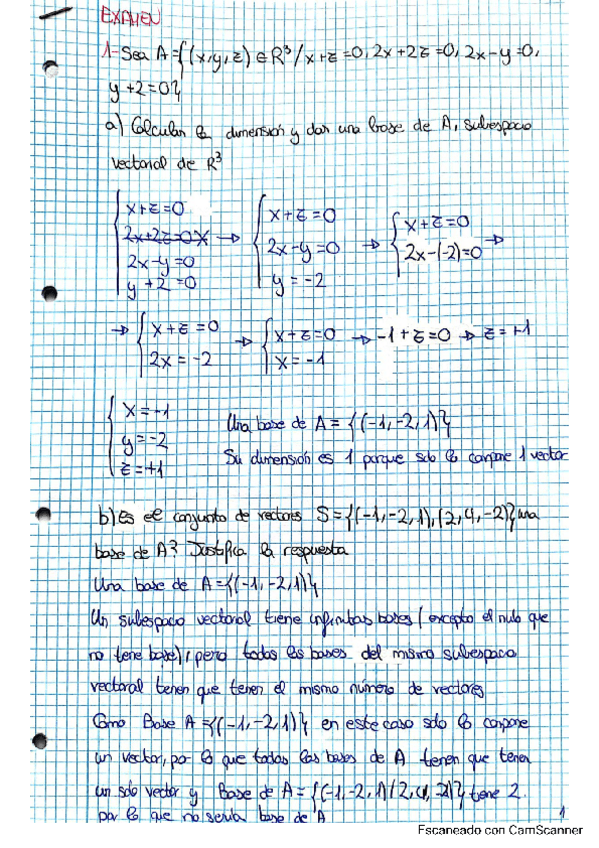 EXAMEN
1- Sea A = {(x,y,z) ∈ R³ / x+z=0, 2x+2z=0, 2x-y=0,
y+2=0}
a) Calcular la dimensión y dar una base de A, subespacio
vectorial de R³
{ x+z=0 { x+z=0 { x+z=0
2x+2z=0 X → 2x-y=0 → 2x-(-2)=0 →
2x-y=0 y=-2
y+2=0
→ { x+z=0 → { x+z=0 → -1+z=0 → z=+1
2x=-2 x=-1
{ x=-1
y=-2 Una base de A = {(-1,-2,1)}
z=+1 Su dimensión es 1 porque solo lo compone 1 vector
b) Es el conjunto de vectores S={(-1,-2,1),(2,4,-2)} una
base de A? Justifica la respuesta
Una base de A={(-1,-2,1)}
Un subespacio vectorial tiene infinitas bases (excepto el nulo que
no tiene base), pero todas las bases del mismo subespacio
vectorial tienen que tener el mismo número de vectores
Como Base A={(-1,-2,1)} en este caso solo lo compone
un vector, por lo que todas las bases de A tienen que tener
un solo vector y Base de A={(-1,-2,1)(2,4,-2)} tiene 2
por lo que no sería base de A
1
Escaneado con CamScanner